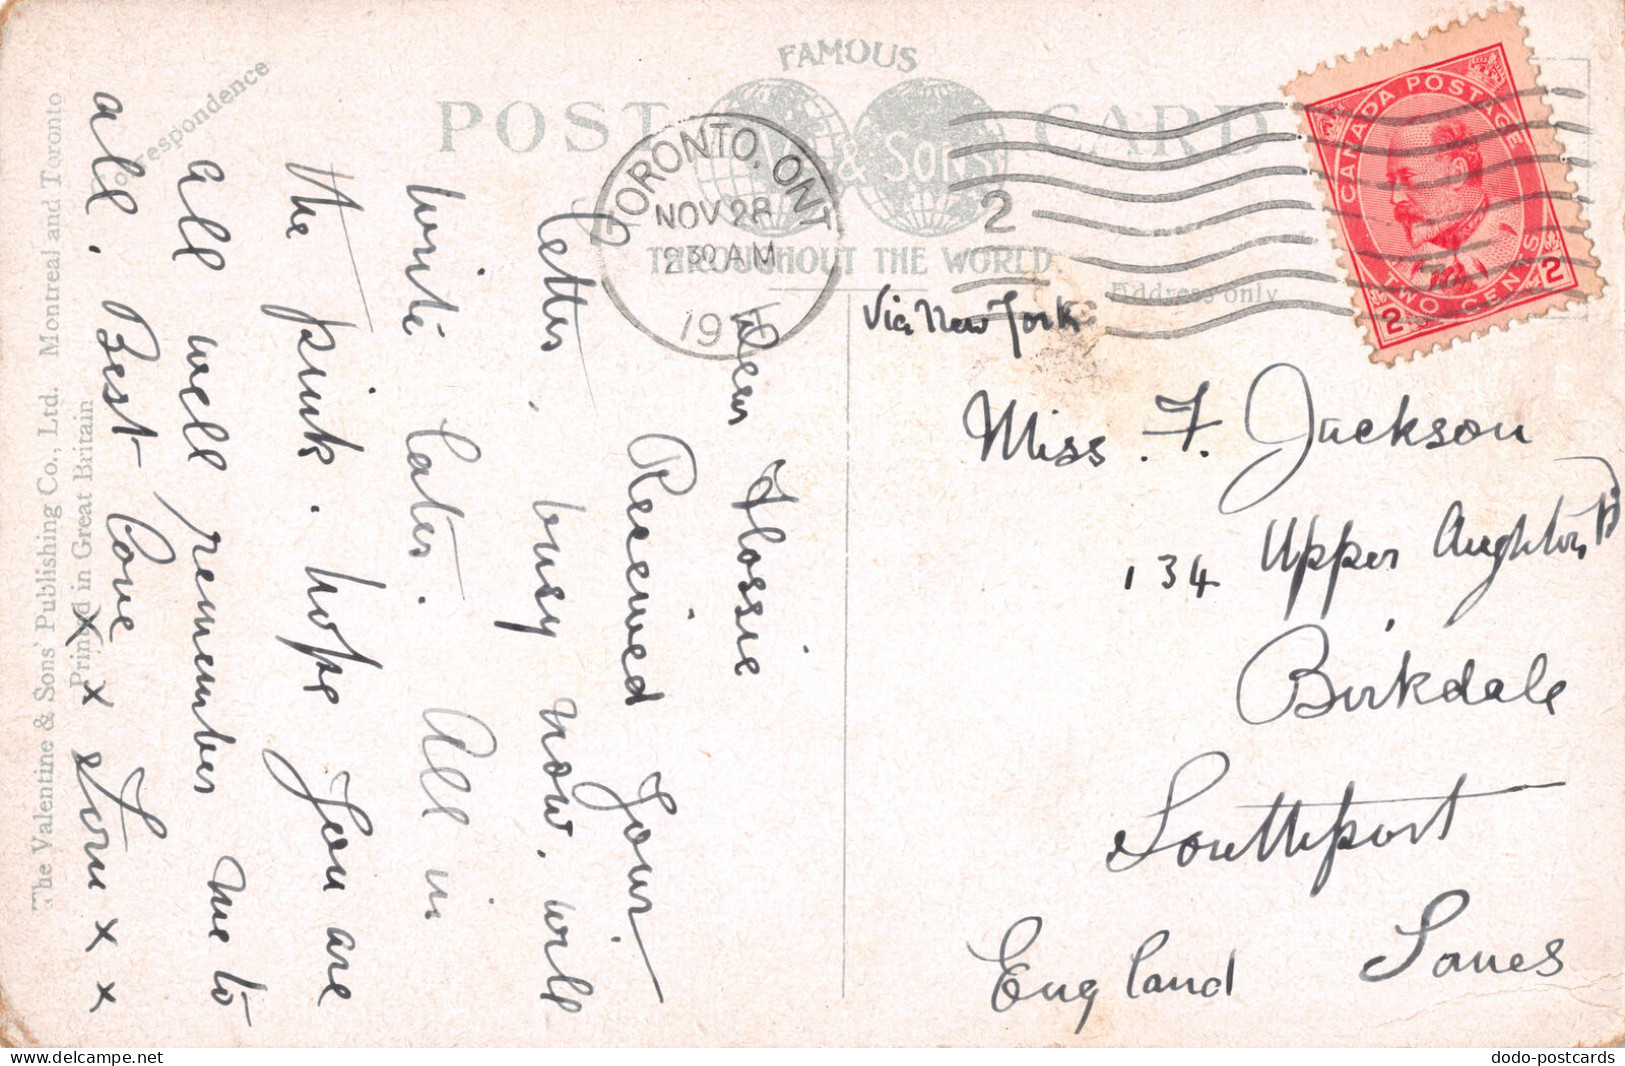 FAMOUS
POST CARD
& SONS
THROUGHOUT THE WORLD
Correspondence
Address only
TORONTO. ONT
NOV 28
2 30 AM
191
2
CANADA POSTAGE
TWO CENTS
2 2
Via New York
Miss. F. Jackson
134 Upper Aughton Rd
Birkdale
Southport
Lancs
England
Dear Flossie
Received Your
letter. busy now. will
write later. All in
the pink. hope You are
all well remember me to
all. Best Love
x x x x
The Valentine & Sons' Publishing Co., Ltd. Montreal and Toronto
Printed in Great Britain
dodo-postcards
Website : https://www.delcampe.net/en_US/collectibles/store/Dodo-Postcards